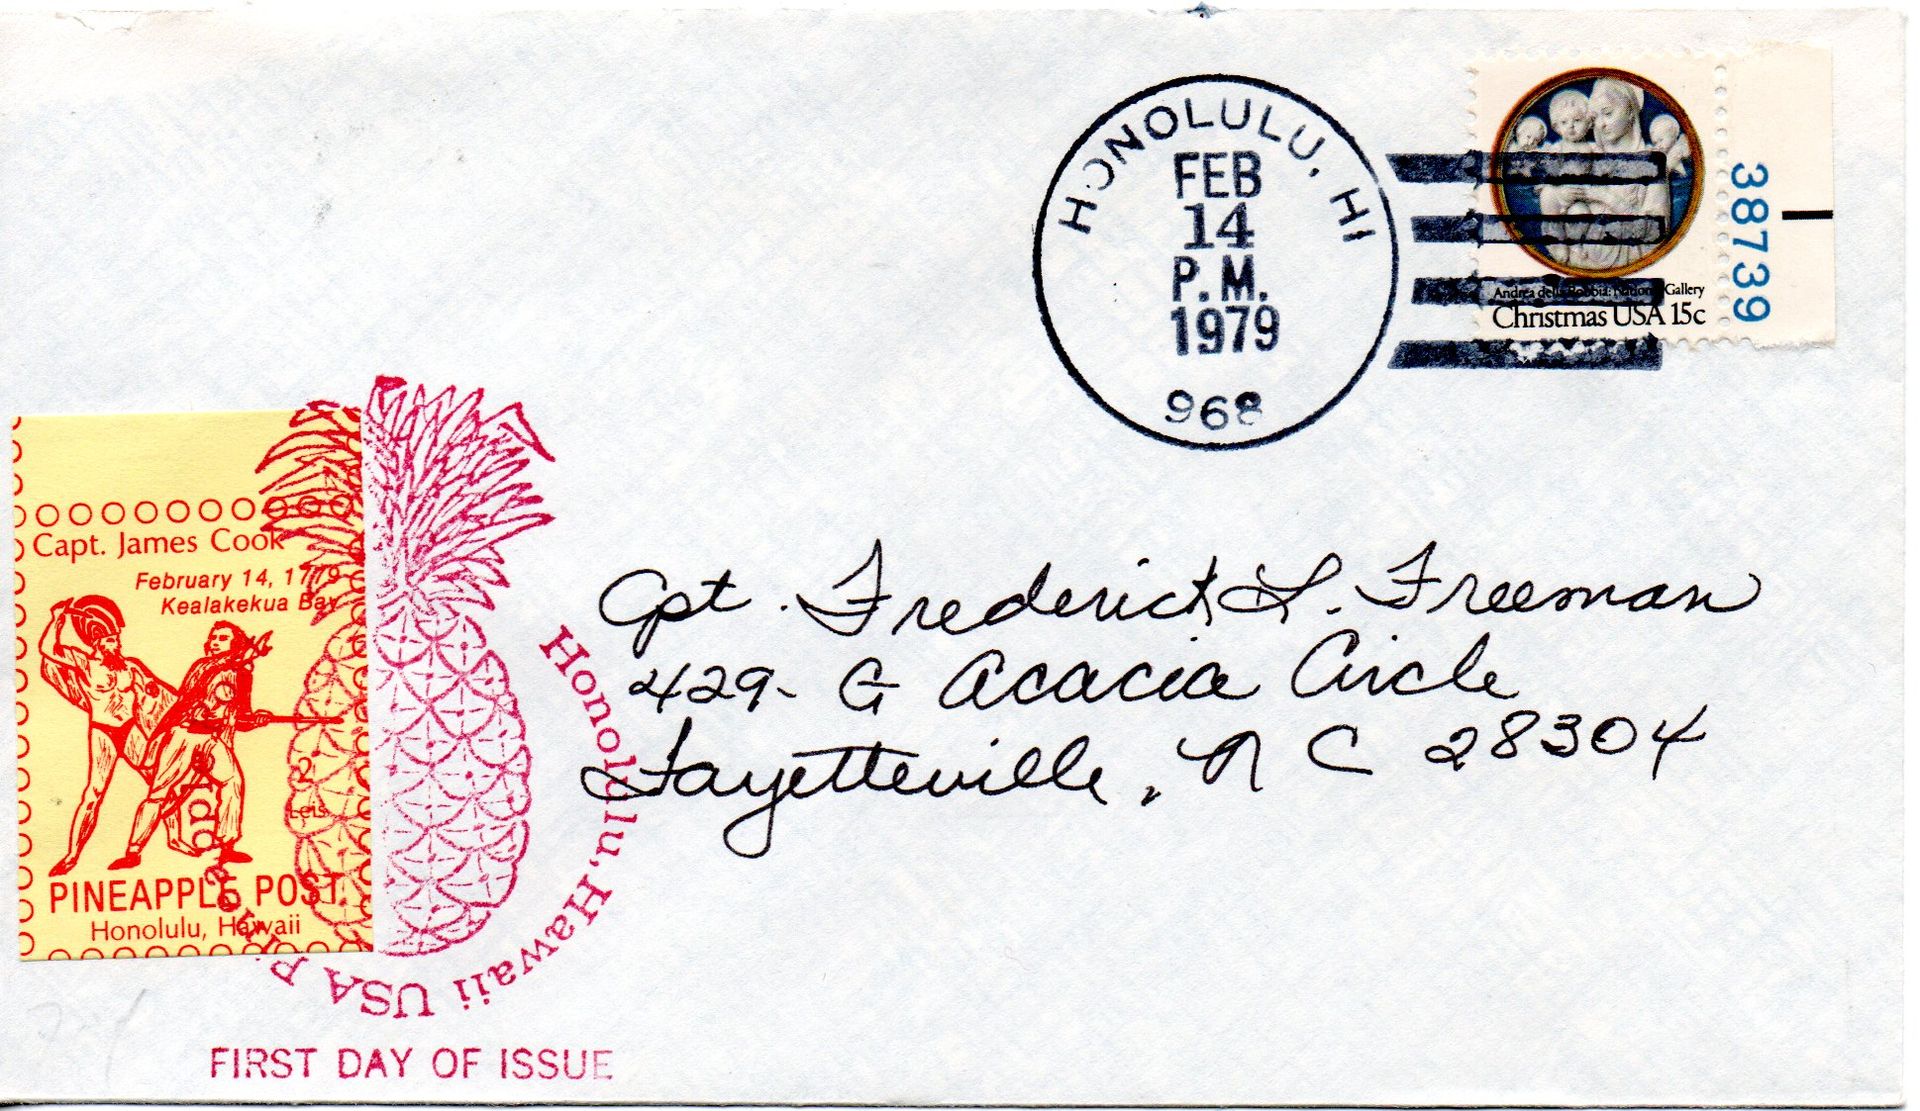 HONOLULU, HI
FEB
14
P.M.
1979
968
Andrea della Robbia: National Gallery
Christmas USA 15c
38739
Capt. James Cook
February 14, 1779
Kealakekua Bay
2
Leis
PINEAPPLE POST
Honolulu, Hawaii
Honolulu, Hawaii USA
FIRST DAY OF ISSUE
Cpt. Frederick L. Freeman
429-G Acacia Circle
Fayetteville, NC 28304